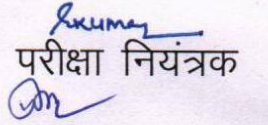 Skumar
परीक्षा नियंत्रक